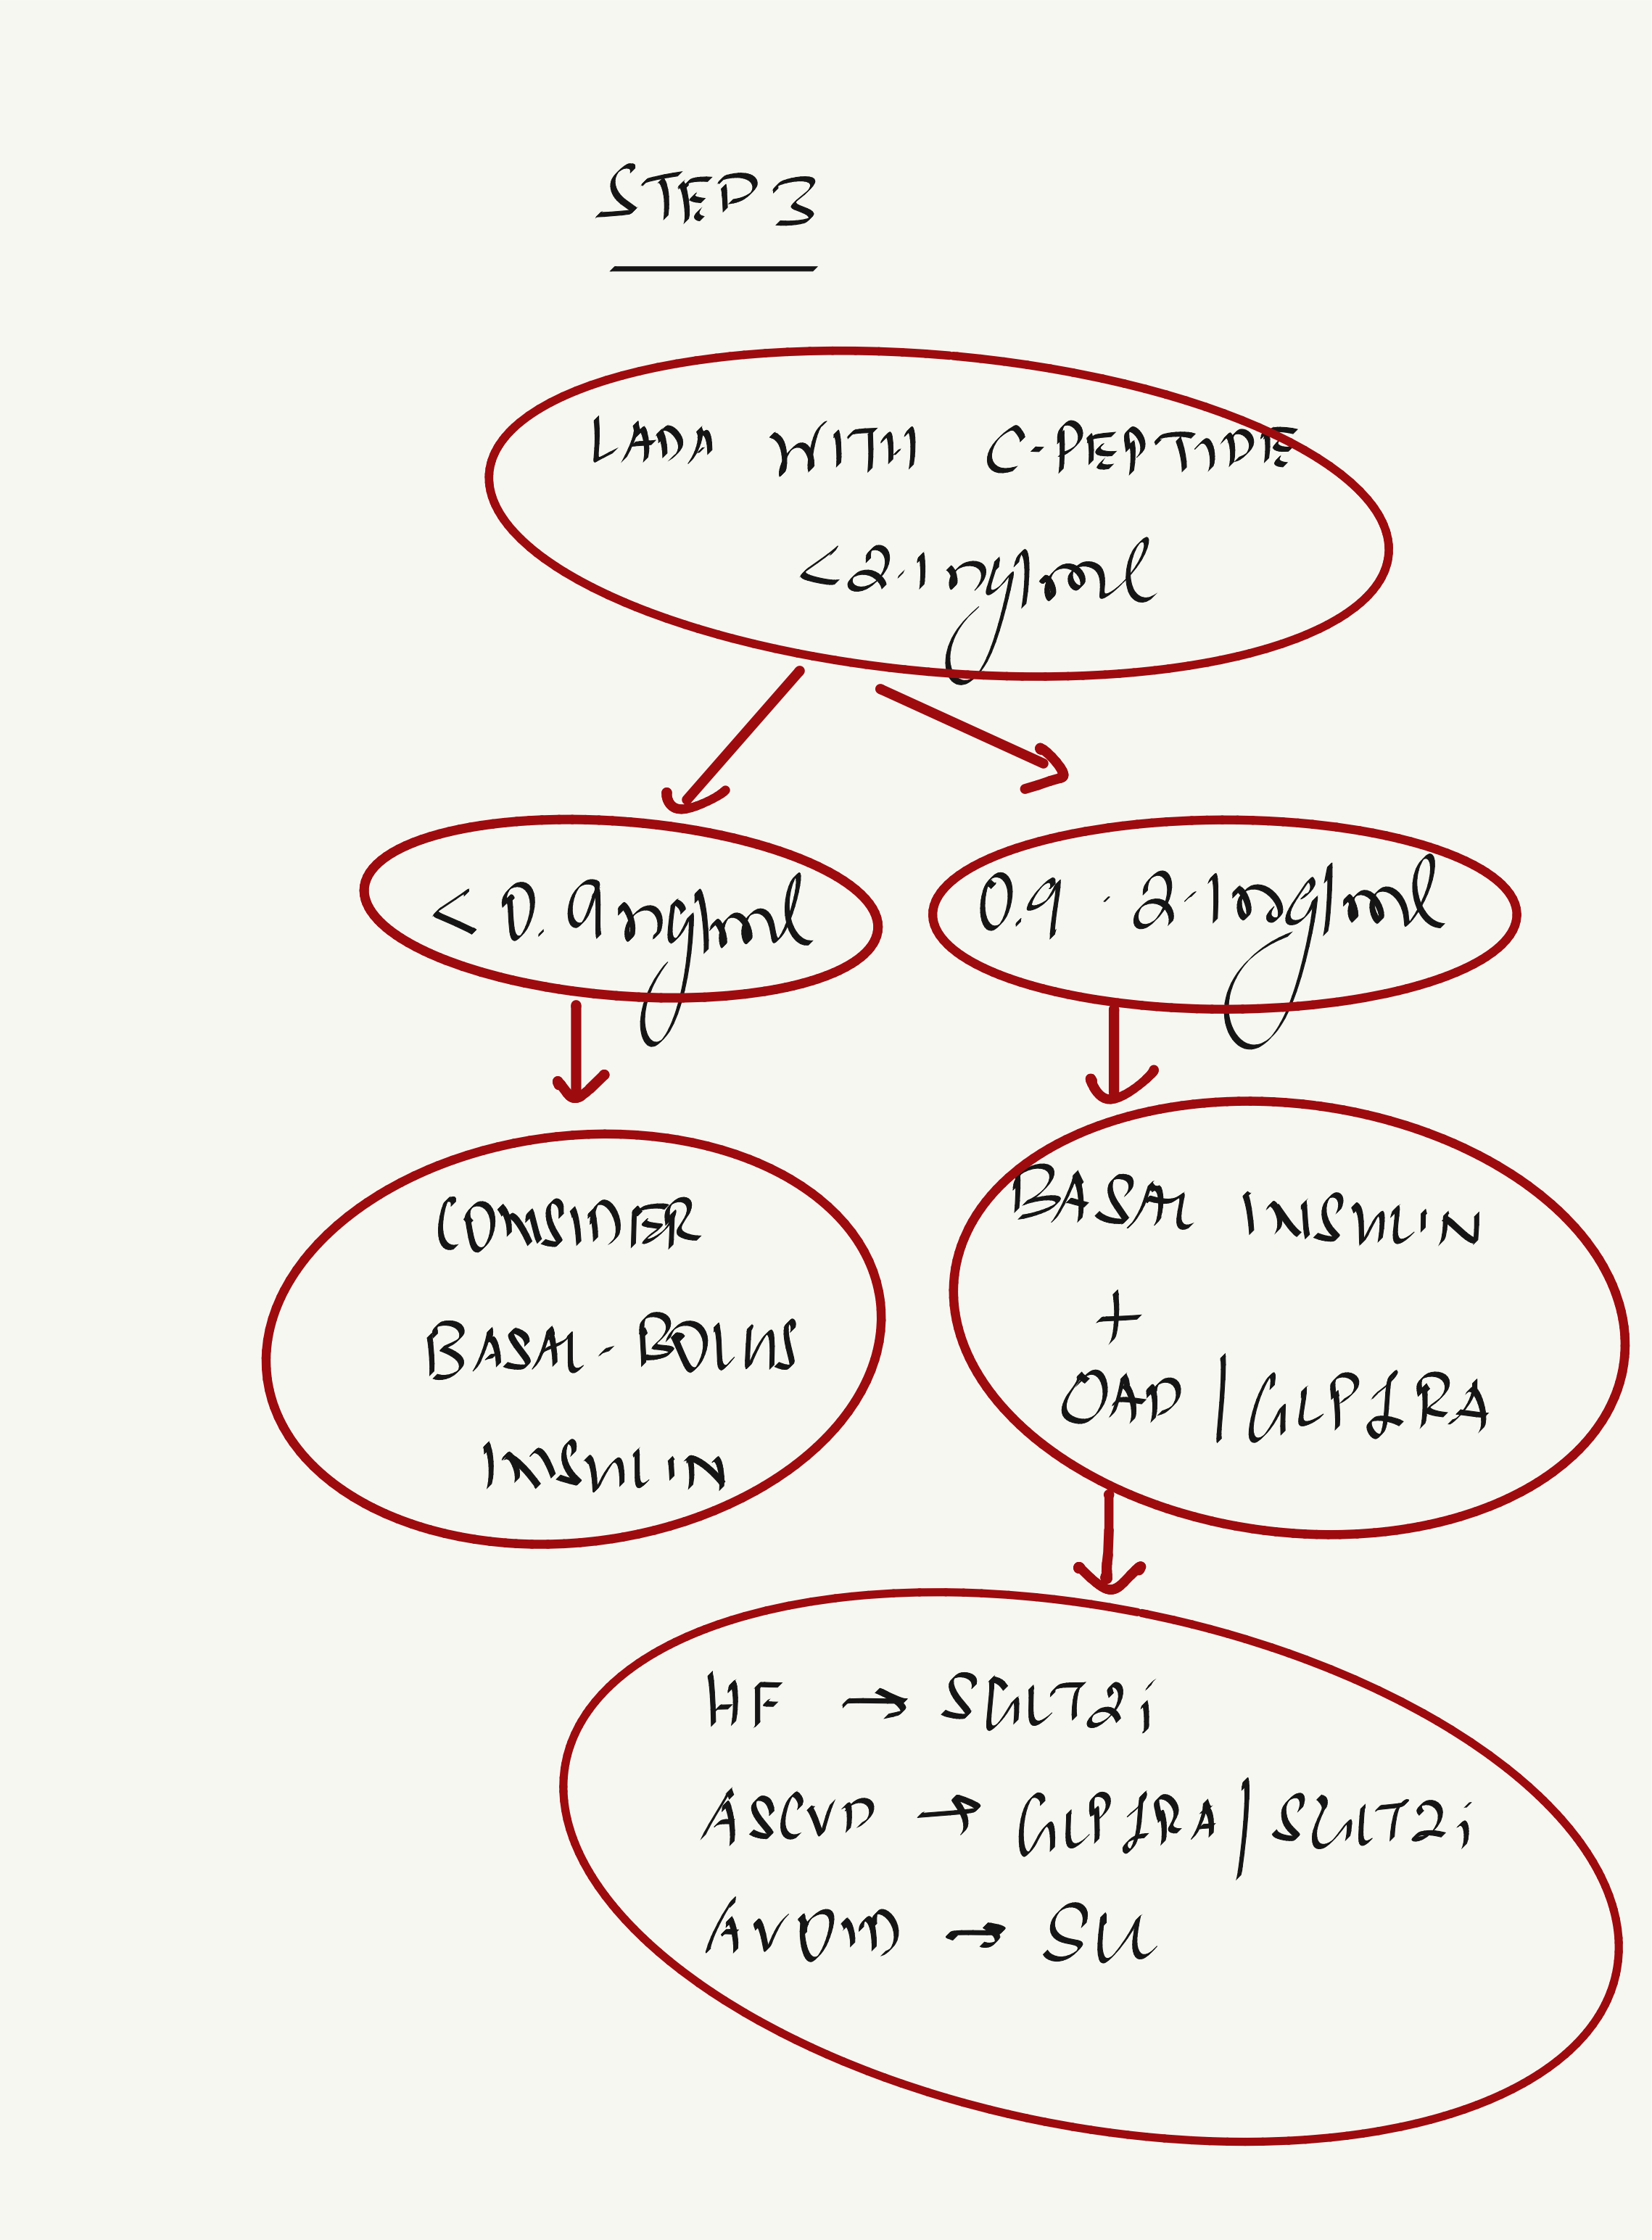 STEP 3
LADA WITH C-PEPTIDE
<2.1 ng/ml
<0.9 ng/ml
0.9 - 2.1 ng/ml
CONSIDER
BASAL-BOLUS
INSULIN
BASAL INSULIN
+
OAD / GLP1RA
HF → SGLT2i
ASCVD → GLP1RA / SGLT2i
AVOID → SU